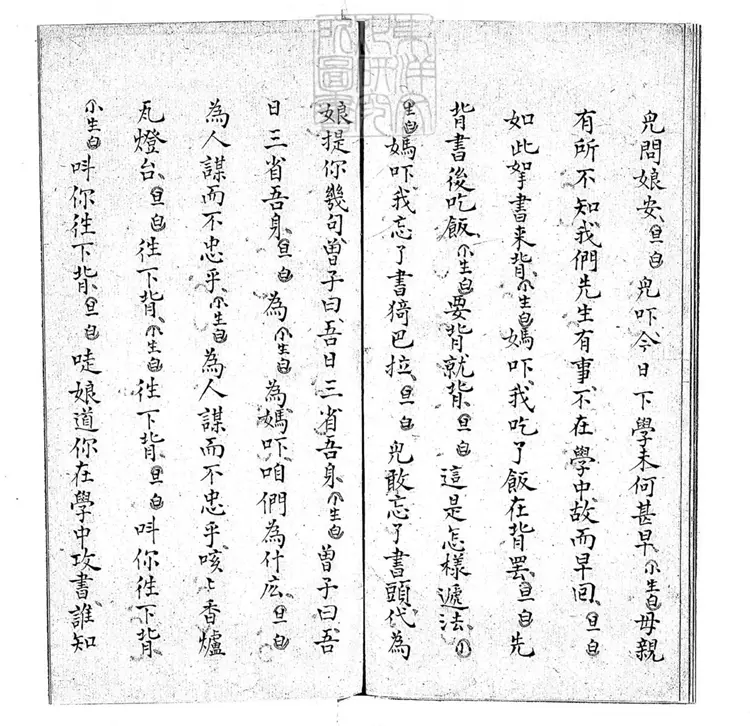 兒問娘安、旦白兒吓、今日下學來何甚早、小生白母親
有所不知、我們先生有事、不在學中、故而早回、旦白
如此拏書来背、小生白媽吓、我吃了飯在背罷、旦白先
背書後吃飯、小生白要背就背、旦白這是怎樣遞法、小
生白媽吓、我忘了書猗巴拉、旦白兒敢忘了書頭、代為
娘提你幾句、曾子曰、吾日三省吾身、小生白曾子曰、吾
日三省吾身、旦白為小生白為、媽吓、咱們為什広、旦白
為人謀而不忠乎、小生白為人謀而不忠乎、咳〻香爐
瓦燈台、旦白徃下背、小生白徃下背、旦白呌你徃下背、
小生白呌你徃下背、旦白唗、娘道你在學中攻書、誰知
東洋文化研究所圖